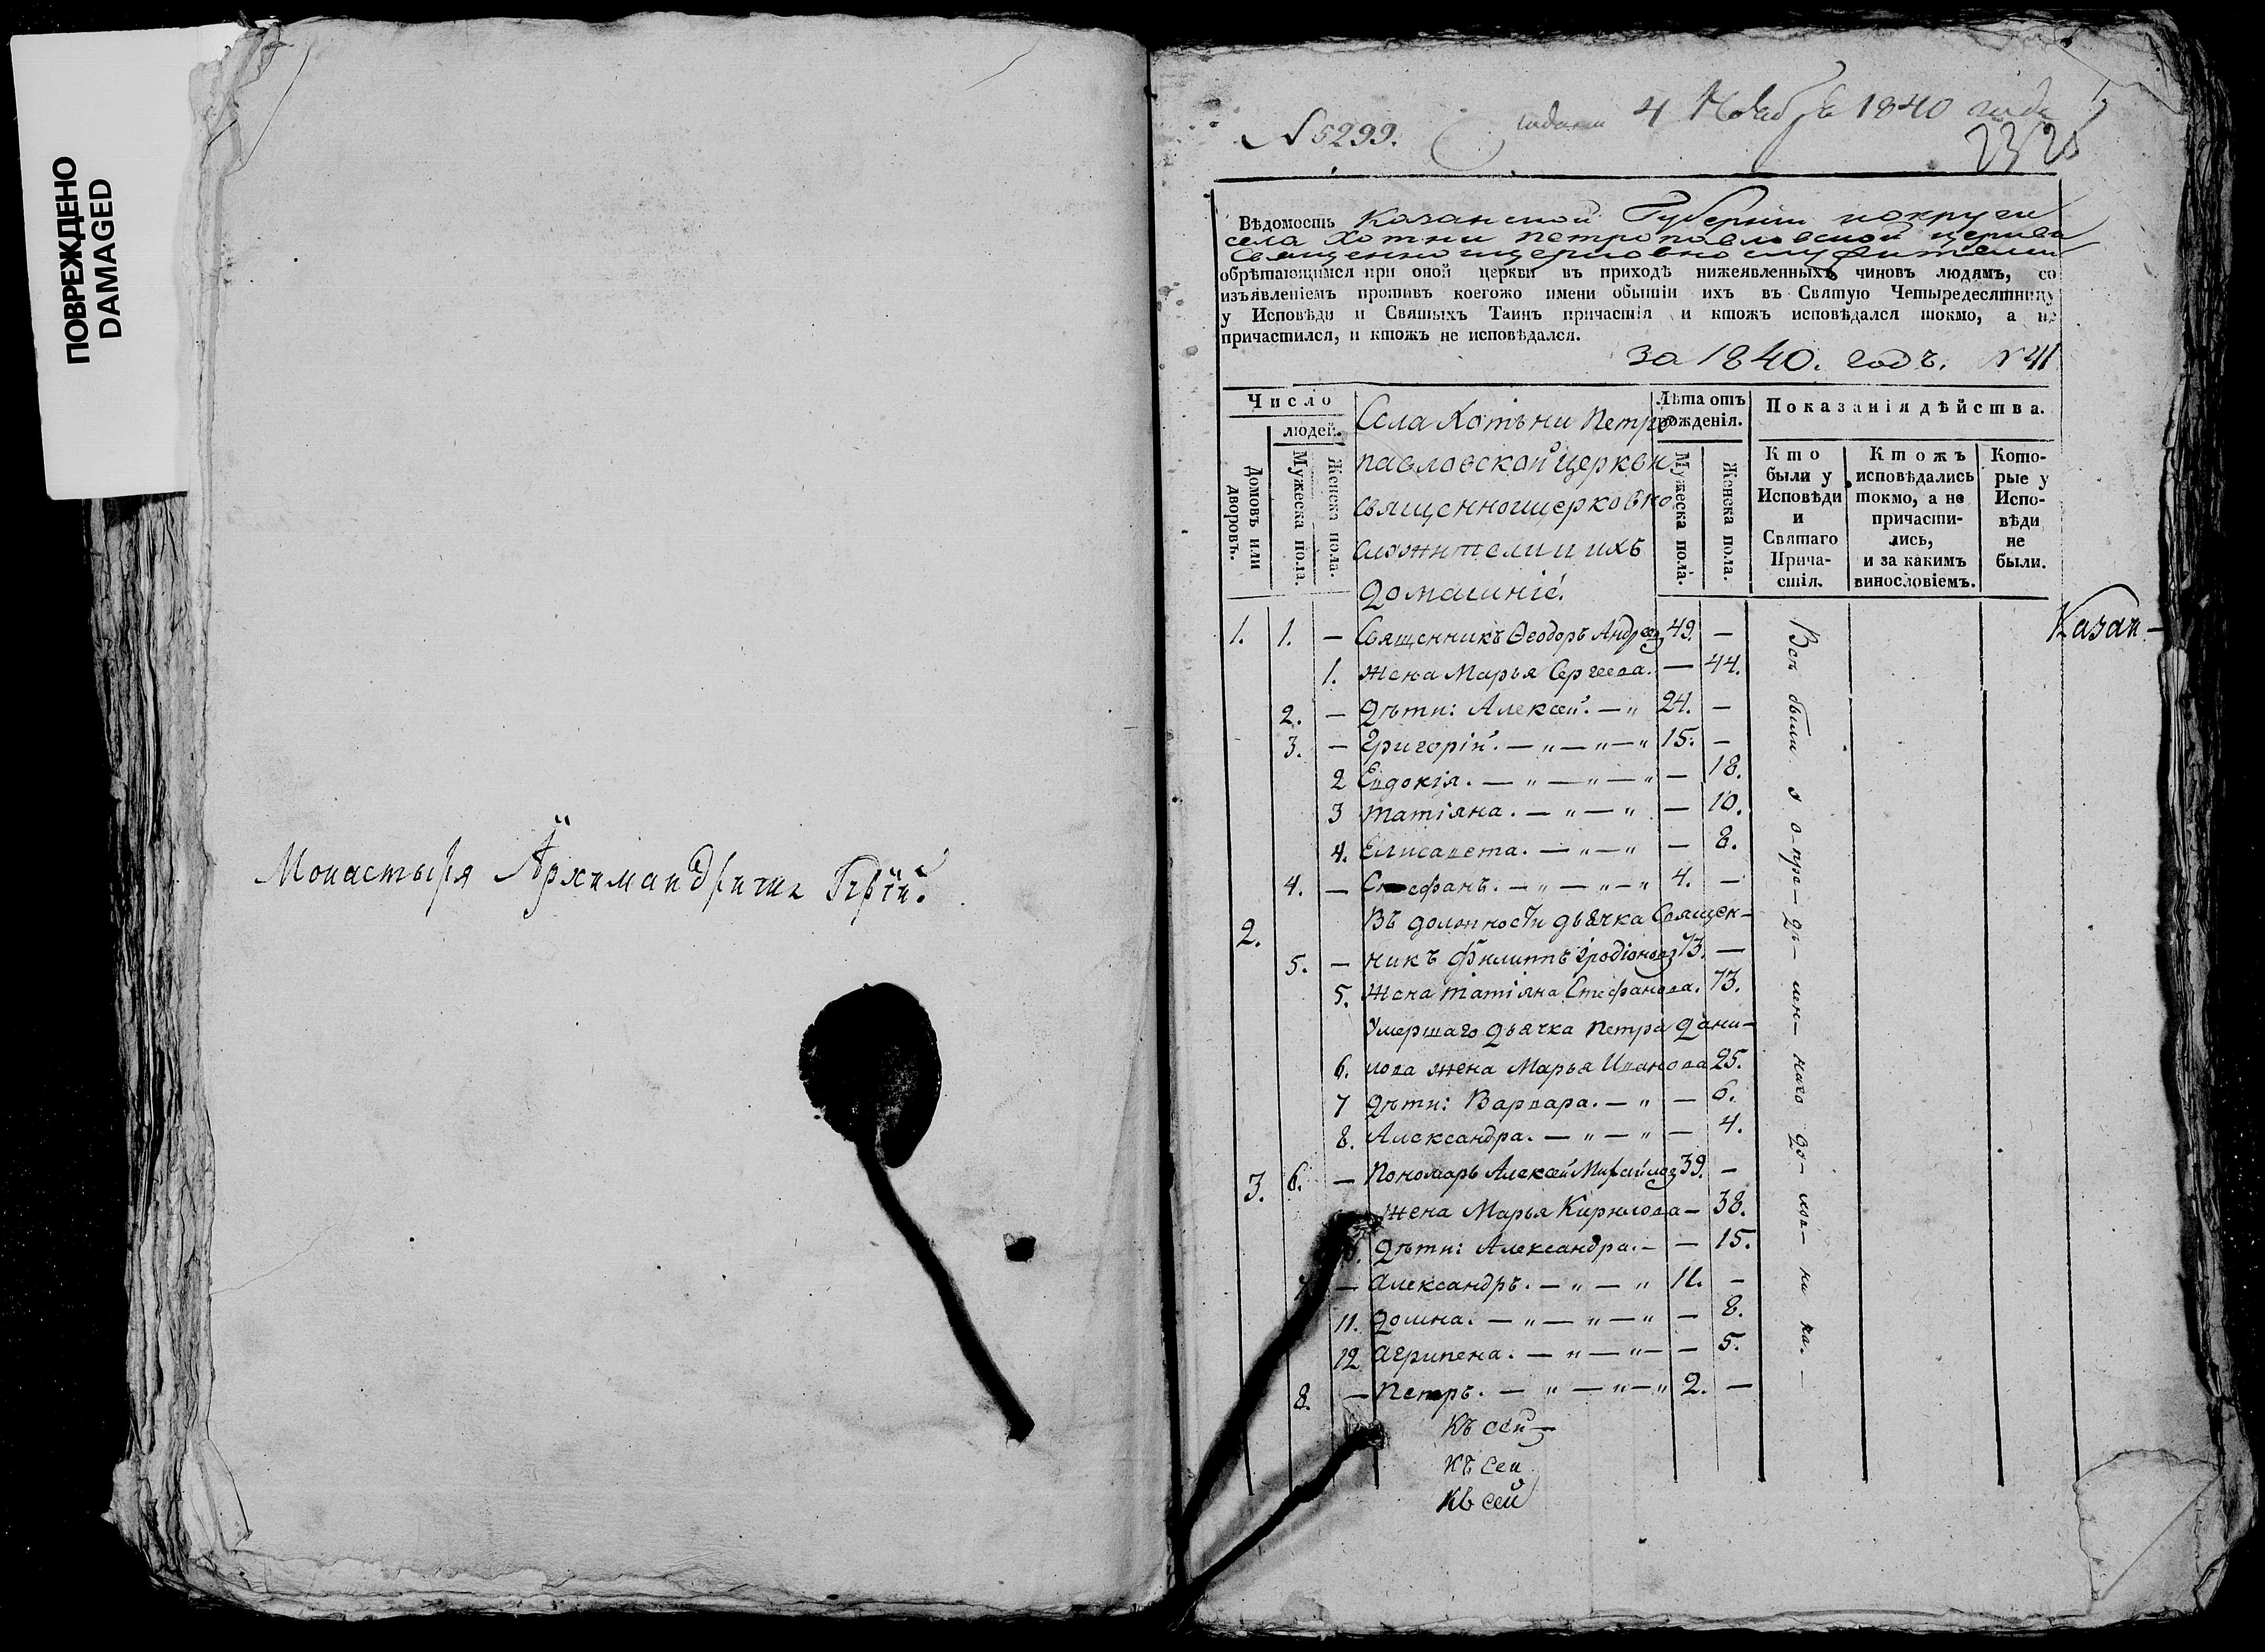 ПОВРЕЖДЕНО
DAMAGED
Монастыря Архимандритъ
N 5299.
4 Ноября 1840 года
Вѣдомость Казанской Губернии и округи
села Хотни Петропавловской церкви
обрѣтающимся при оной церкви въ приходѣ нижеявленныхъ чиновъ людямъ, со
изъявленіемъ противъ коегожо имени обытіи ихъ въ Святую Четыредесятницу
у Исповѣди и Святыхъ Таинъ причастія и ктожъ исповѣдался токмо, а не
причастился, и ктожъ не исповѣдался.
за 1840. годъ. N 41
Число
людей.
Домовъ или дворовъ.
Мужеска пола.
Женска пола.
Села Хотьни Петро
павловской церкви
священноицерковно
служители и ихъ
домашніе.
Лѣта отъ рожденія.
Мужеска пола.
Женска пола.
Показанія дѣйства.
Кто были у Исповѣди и Святаго Причастія.
Ктожъ исповѣдались токмо, а не причастились, и за какимъ винословіемъ.
Которые у Исповѣди не были.
1. 1. — Священникъ Ѳеодоръ Андреевъ 49. —
1. жена Марья Сергеева. — 44.
2. — Дѣти: Алексей. — „ 24. —
3. — Григорій. — „ — „ — „ 15. —
2 Евдокія. — „ — „ — „ — 18.
3 Татіяна. — „ — „ — 10.
4. Елисавета. — „ — „ — 8.
4. — Стефанъ. — „ — „ — „ 4. —
2. Въ должности дьячка Священ-
5. — никъ Филиппъ Іродіоновъ 73. —
5. Жена Татіяна Стефанова. 73.
Умершаго дьячка Петра Дани-
6. лова жена Марья Иванова 25.
7 Дѣти: Варвара. — „ — 6.
8. Александра. — „ — „ — 4.
3. 6. — Пономарь Алексей 39. —
жена Марья Кирилова — 38.
Дѣти: Александра. — — 15.
7 — Александръ. — „ — „ 11. —
11. Домна. — „ — „ — „ — 8.
12 Агрипена. — „ — „ — — 5.
8. — Петръ. — „ — „ — „ 2. —
Къ сей
Къ сей
Къ сей
Всѣ были у о-пре-дѣ-лен-наго до-мо-
Казан-